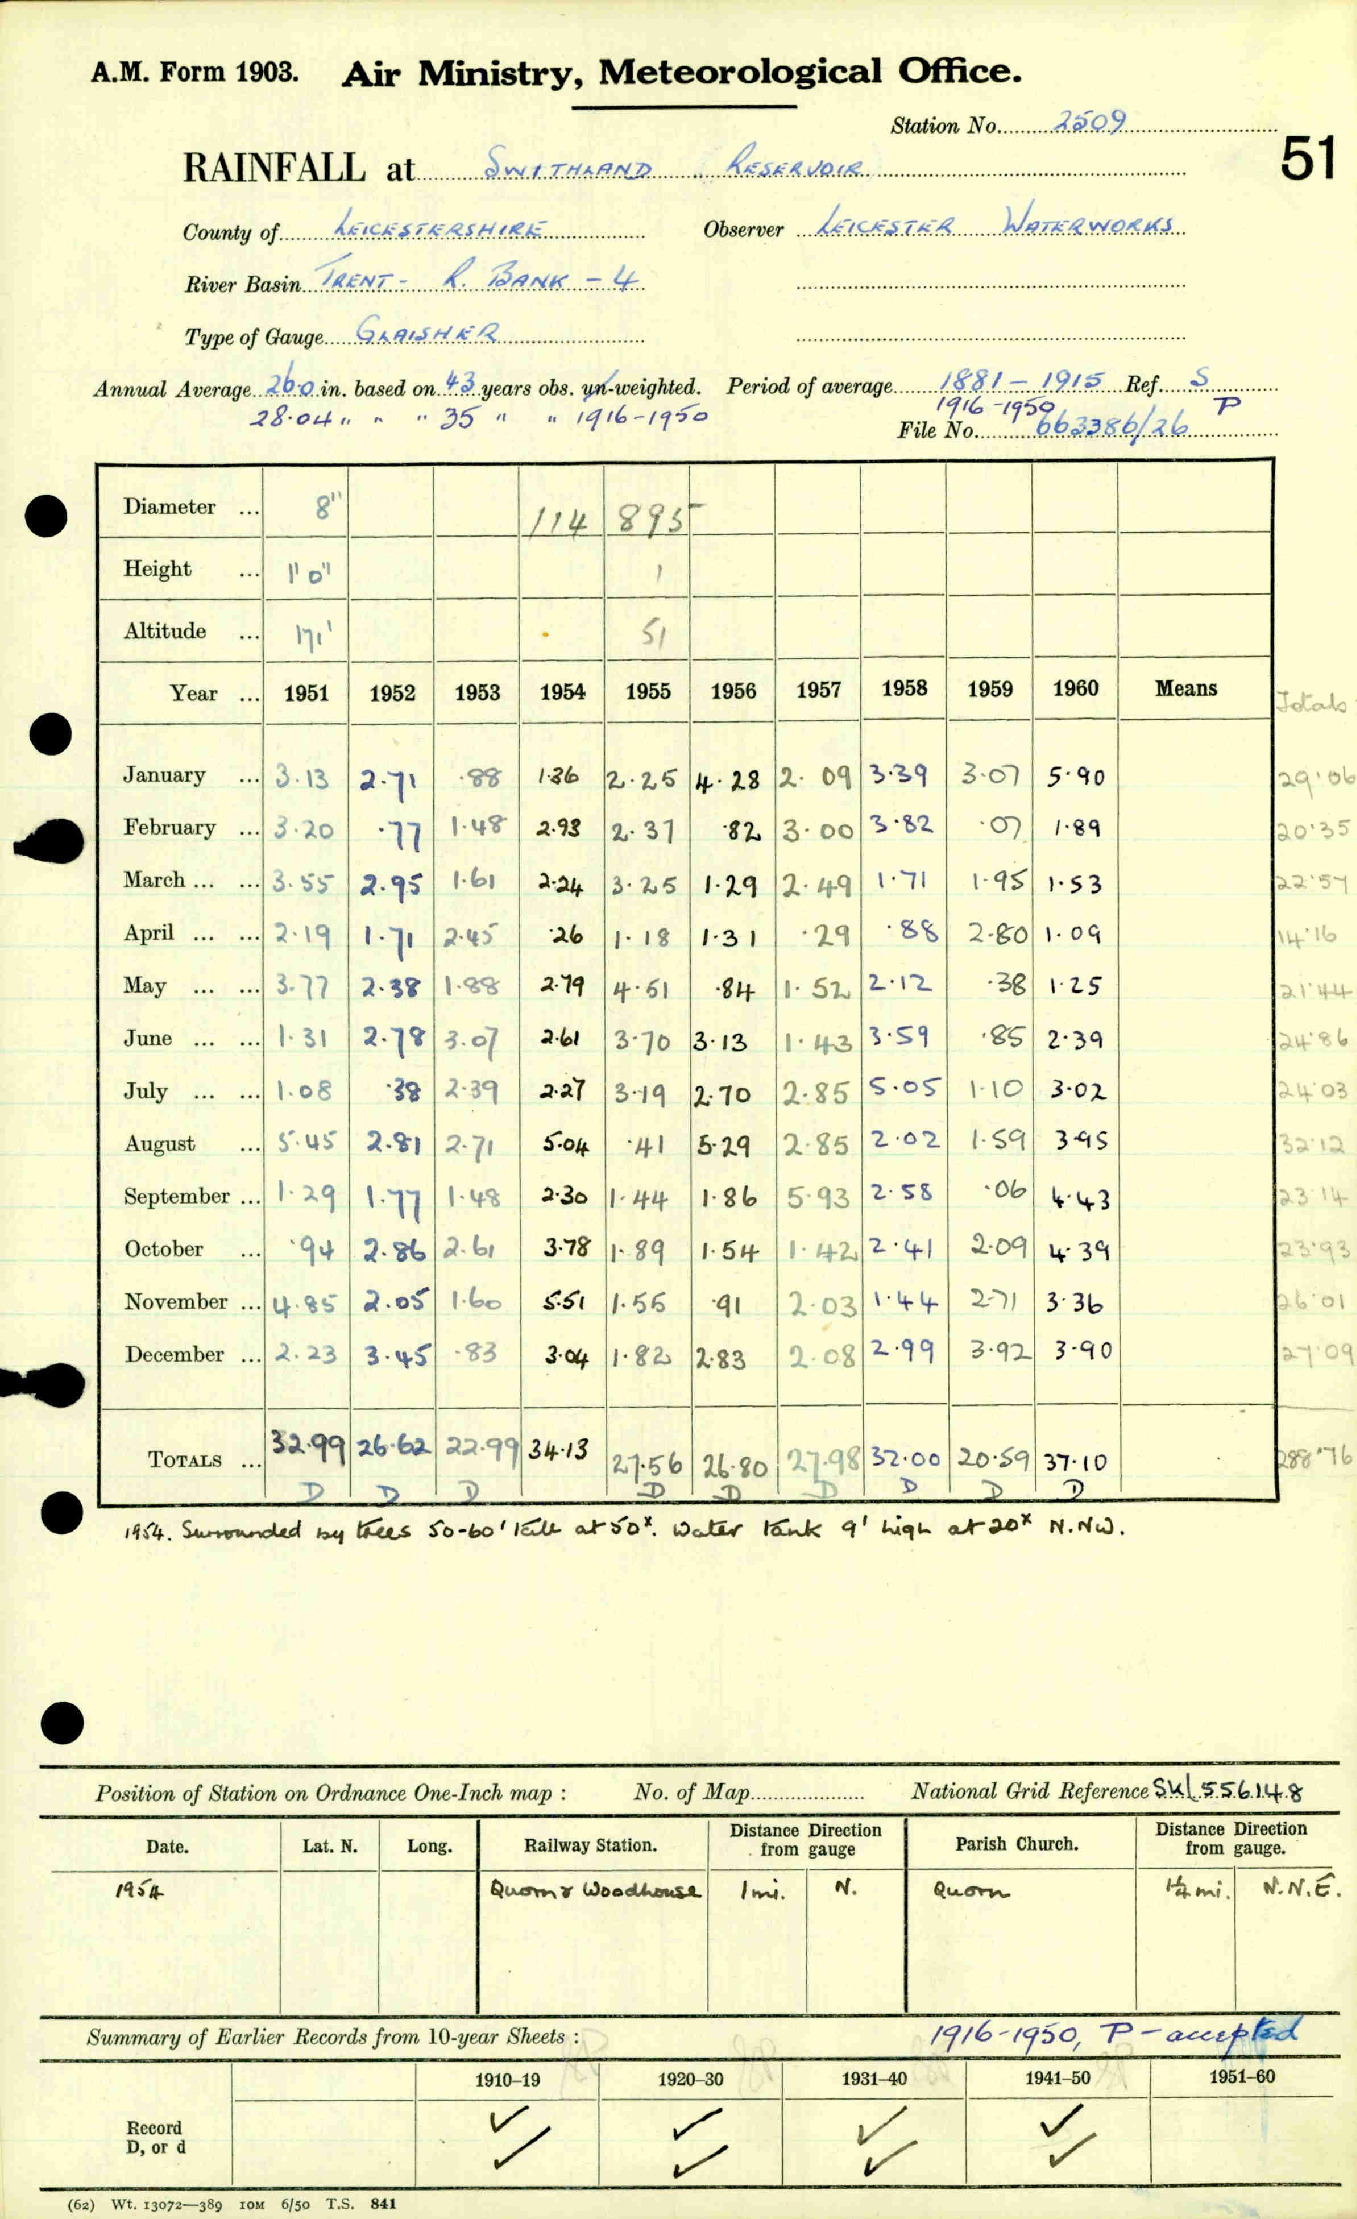 A.M. Form 1903. Air Ministry, Meteorological Office.
Station No. 2509
51
RAINFALL at SWITHLAND RESERVOIR
County of LEICESTERSHIRE Observer LEICESTER WATERWORKS
River Basin TRENT - R. BANK - 4
Type of Gauge GLAISHER
Annual Average 26.0 in. based on 43 years obs. un-weighted. Period of average 1881 - 1915 Ref. S
28.04 " " " 35 " " 1916-1950 1916-1950 P
File No. 663386/26
Diameter ... 8" 114 895
Height ... 1' 0" 1
Altitude ... 171' 51
Year ... 1951 1952 1953 1954 1955 1956 1957 1958 1959 1960 Means Totals
January ... 3.13 2.71 .88 1.36 2.25 4.28 2.09 3.39 3.07 5.90 29.06
February ... 3.20 .77 1.48 2.93 2.37 .82 3.00 3.82 .07 1.89 20.35
March ... ... 3.55 2.95 1.61 2.24 3.25 1.29 2.49 1.71 1.95 1.53 22.57
April ... ... 2.19 1.71 2.45 .26 1.18 1.31 .29 .88 2.80 1.09 14.16
May ... ... 3.77 2.38 1.88 2.79 4.51 .84 1.52 2.12 .38 1.25 21.44
June ... ... 1.31 2.78 3.07 2.61 3.70 3.13 1.43 3.59 .85 2.39 24.86
July ... ... 1.08 .38 2.39 2.27 3.19 2.70 2.85 5.05 1.10 3.02 24.03
August ... 5.45 2.81 2.71 5.04 .41 5.29 2.85 2.02 1.59 3.95 32.12
September ... 1.29 1.77 1.48 2.30 1.44 1.86 5.93 2.58 .06 4.43 23.14
October ... .94 2.86 2.61 3.78 1.89 1.54 1.42 2.41 2.09 4.39 23.93
November ... 4.85 2.05 1.60 5.51 1.55 .91 2.03 1.44 2.71 3.36 26.01
December ... 2.23 3.45 .83 3.04 1.82 2.83 2.08 2.99 3.92 3.90 27.09
TOTALS ... 32.99 26.62 22.99 34.13 27.56 26.80 27.98 32.00 20.59 37.10 288.76
D D D D D D D D D
1954. Surrounded by trees 50-60' tall at 50x. Water tank 9' high at 20x N.NW.
Position of Station on Ordnance One-Inch map : No. of Map National Grid Reference SK 556148
Date. Lat. N. Long. Railway Station. Distance Direction from gauge Parish Church. Distance Direction from gauge.
1954 Quorn & Woodhouse 1 mi. N. Quorn 1¼ mi. N.N.E.
Summary of Earlier Records from 10-year Sheets : 1916-1950, P - accepted
1910–19 1920–30 1931–40 1941–50 1951–60
Record ✓ ✓ ✓ ✓
D, or d ✓ ✓ ✓ ✓
(62) Wt. 13072—389 10M 6/50 T.S. 841